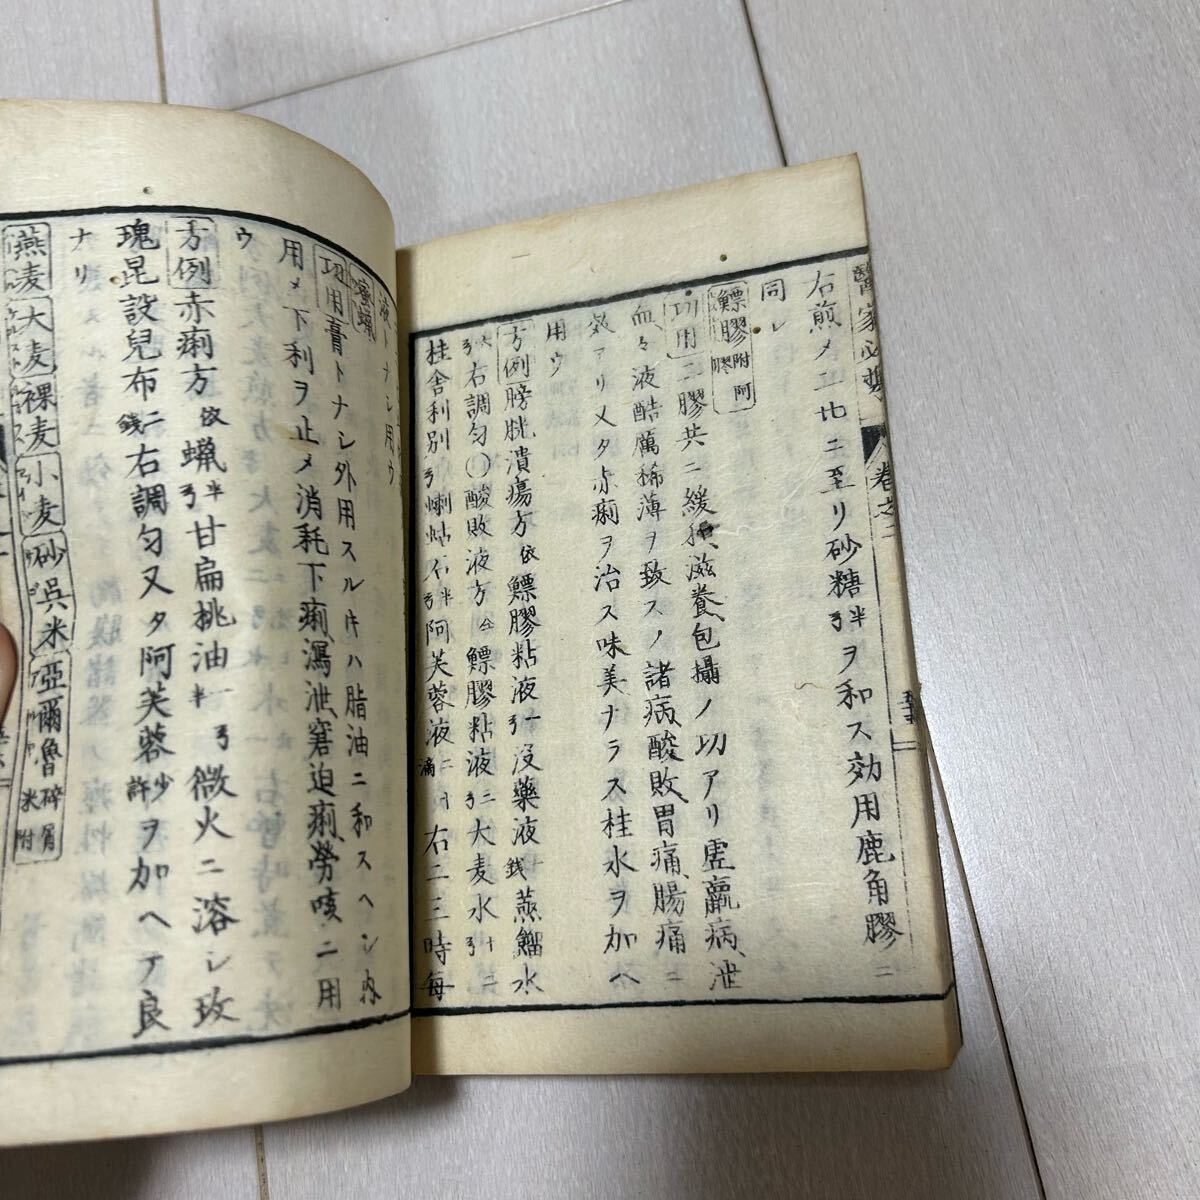 醫家必携 卷之二
右煎メ一比ニ至リ砂糖半ヲ和ス効用鹿角膠ニ
同シ
鰾膠附阿膠
功用 二膠共ニ緩和滋養包攝ノ功アリ虚羸病泄
血々液酷厲稀薄ヲ致スノ諸病酸敗胃痛腸痛ニ
效アリ又タ赤痢ヲ治ス味美ナラス桂水ヲ加ヘ
用ウ
方例 膀胱潰瘍方 依 鰾膠粘液一 没藥液 錢 蒸餾水
右調勻〇酸敗液方 鰾膠粘液二 大麦水十二
桂舎利別 蝲蛄石半 阿芙蓉液二十滴 右二三時毎
液トナシ用ウ
蜜蝋
功用 膏トナシ外用スルキハ脂油ニ和スヘシ内
用メ下利ヲ止メ消耗下痢瀉泄窘迫痢勞咳ニ用
ウ
方例 赤痢方 依 蝋半 甘扁桃油一半 微火ニ溶シ玫
瑰昆設兒布二錢 右調勻又タ阿芙蓉少許ヲ加ヘテ良
ナリ
燕麦 大麦 裸麦 小麦 砂呉米 亞爾魯碎屑 米附